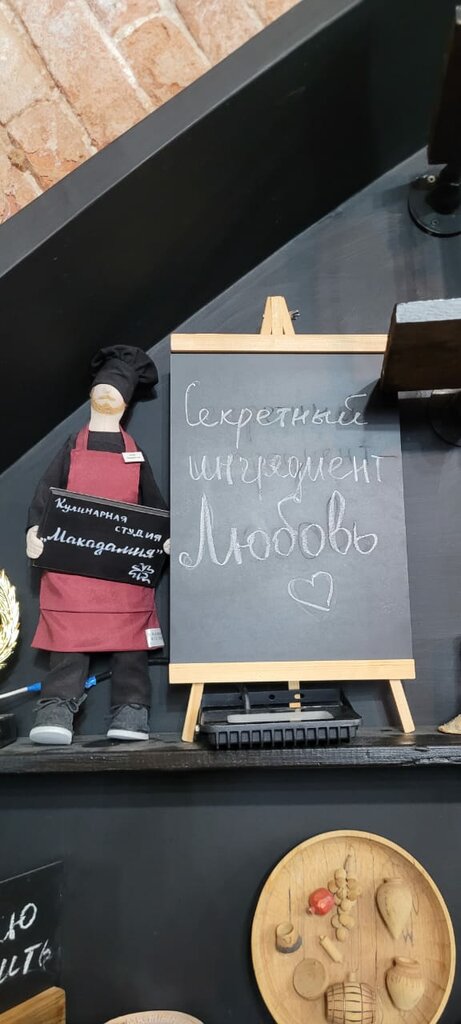 Секретный
ингредиент
Любовь
Кулинарная
студия
„Макадамия"